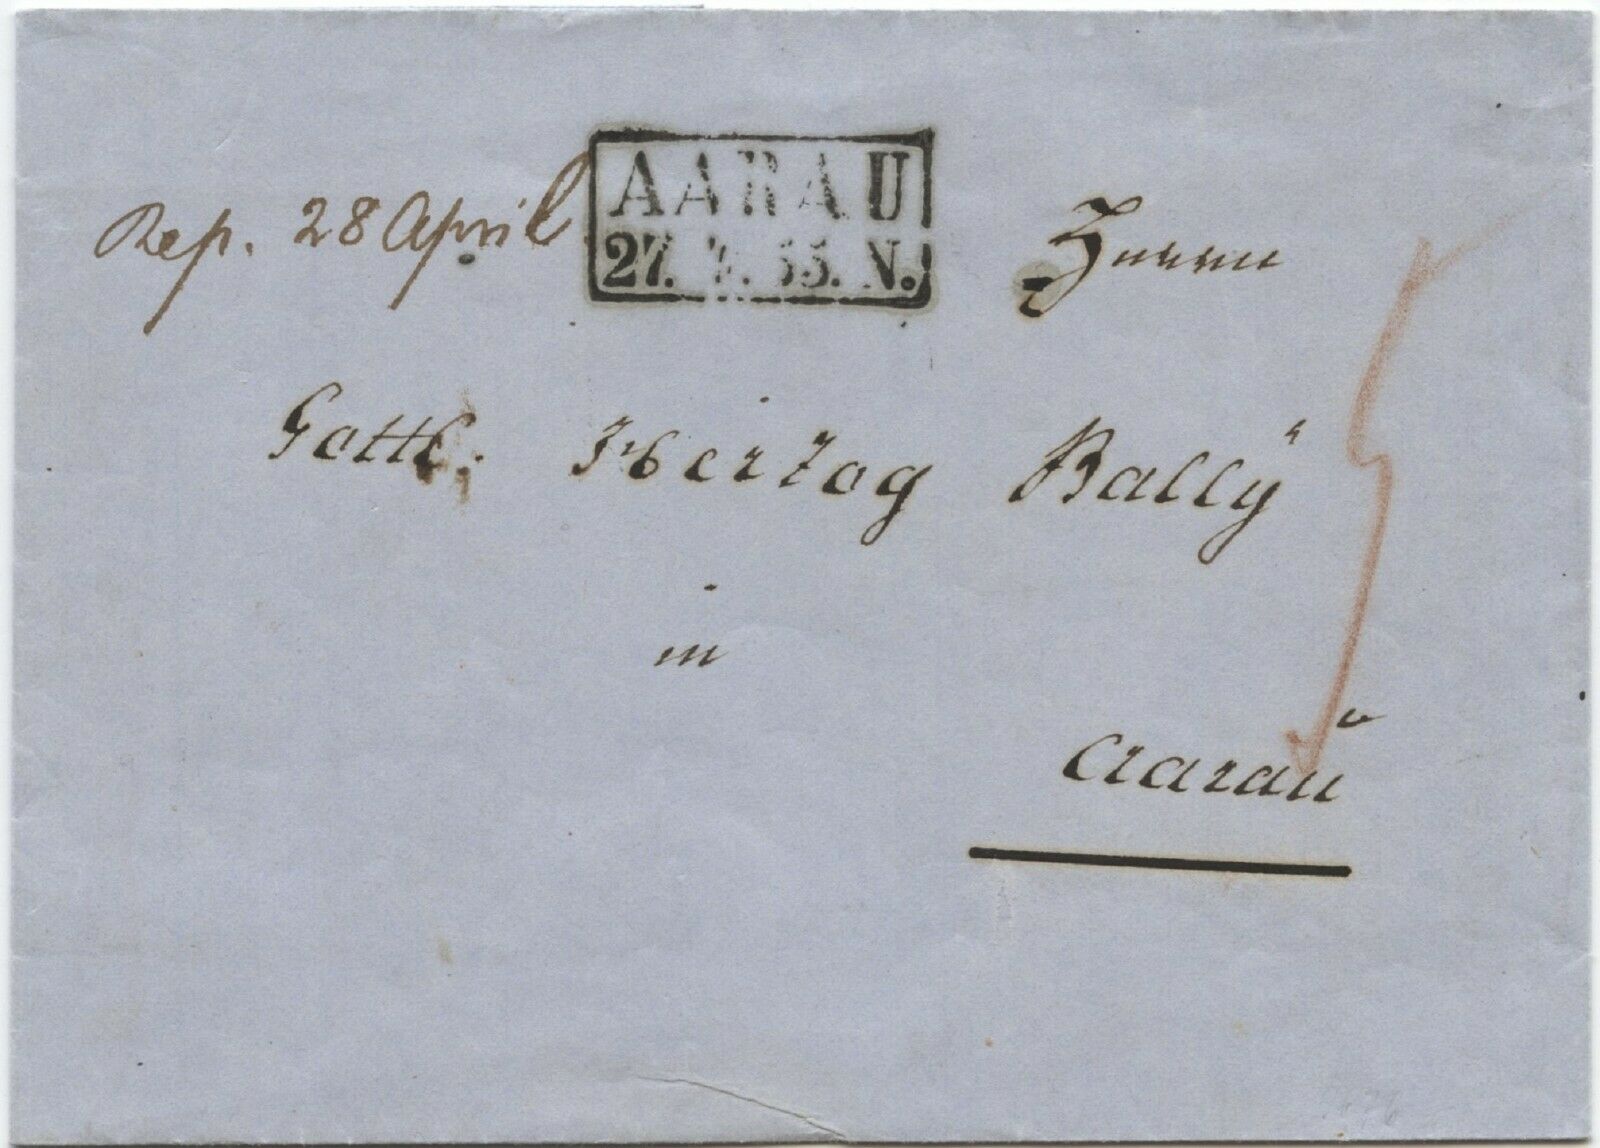 AARAU
27. 4. 55. N.
Rep. 28 April
Herrn
Gottl. Herzog Bally
in
Aarau